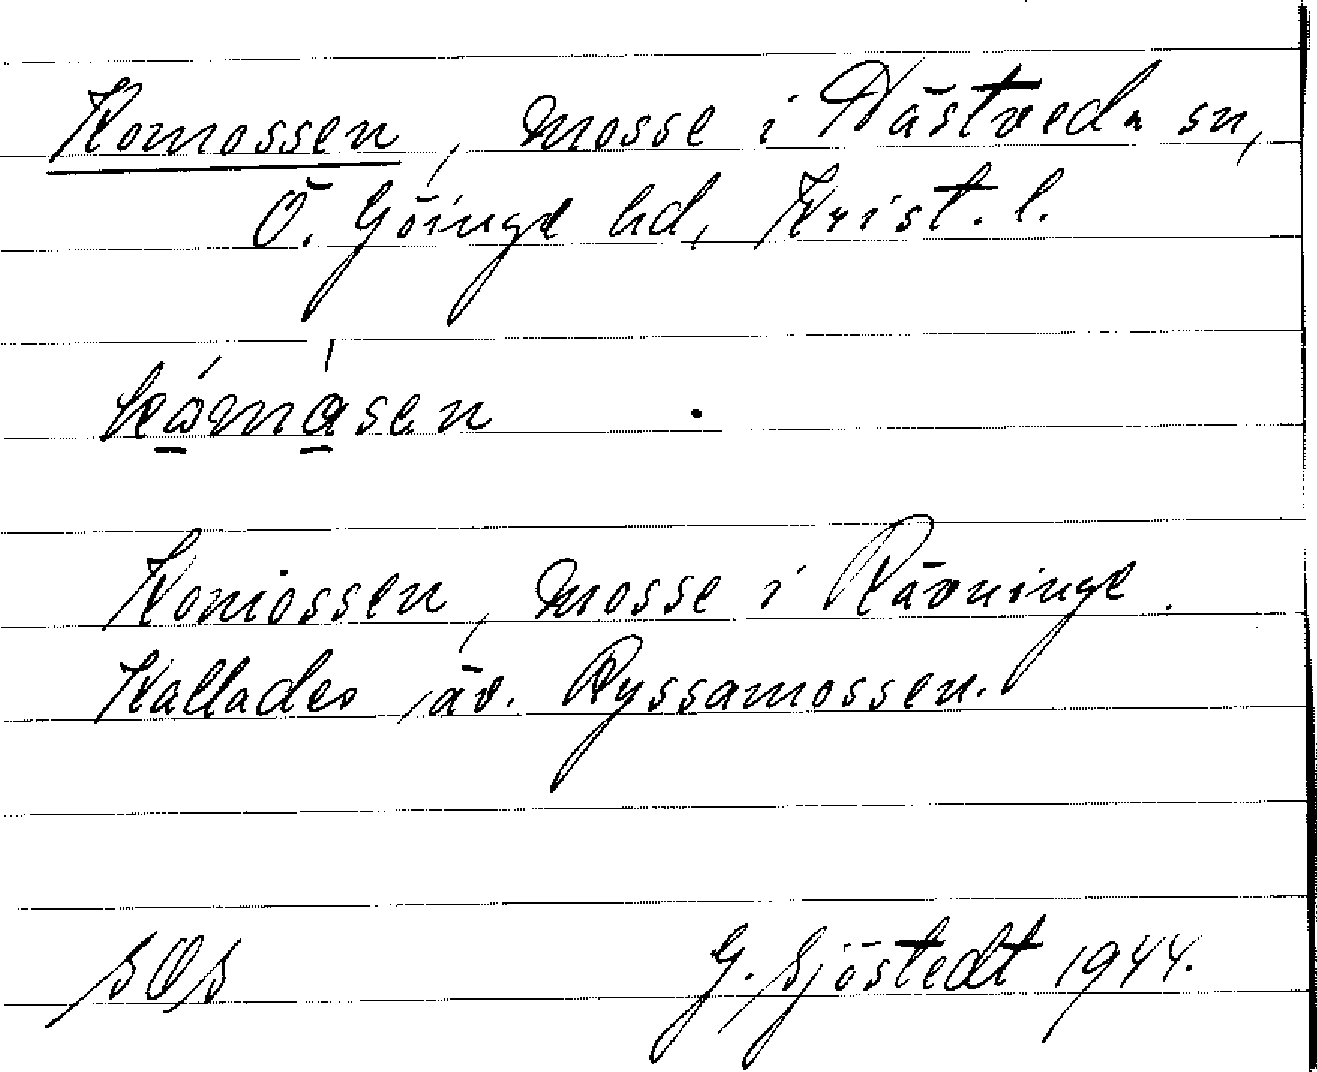 Komossen, mosse i Hästveda sn,
Ö. Göinge hd, Krist. l.
Komossen, mosse i Rävninge.
Kallades äv. Ryssamossen.
G. Sjöstedt 1944.